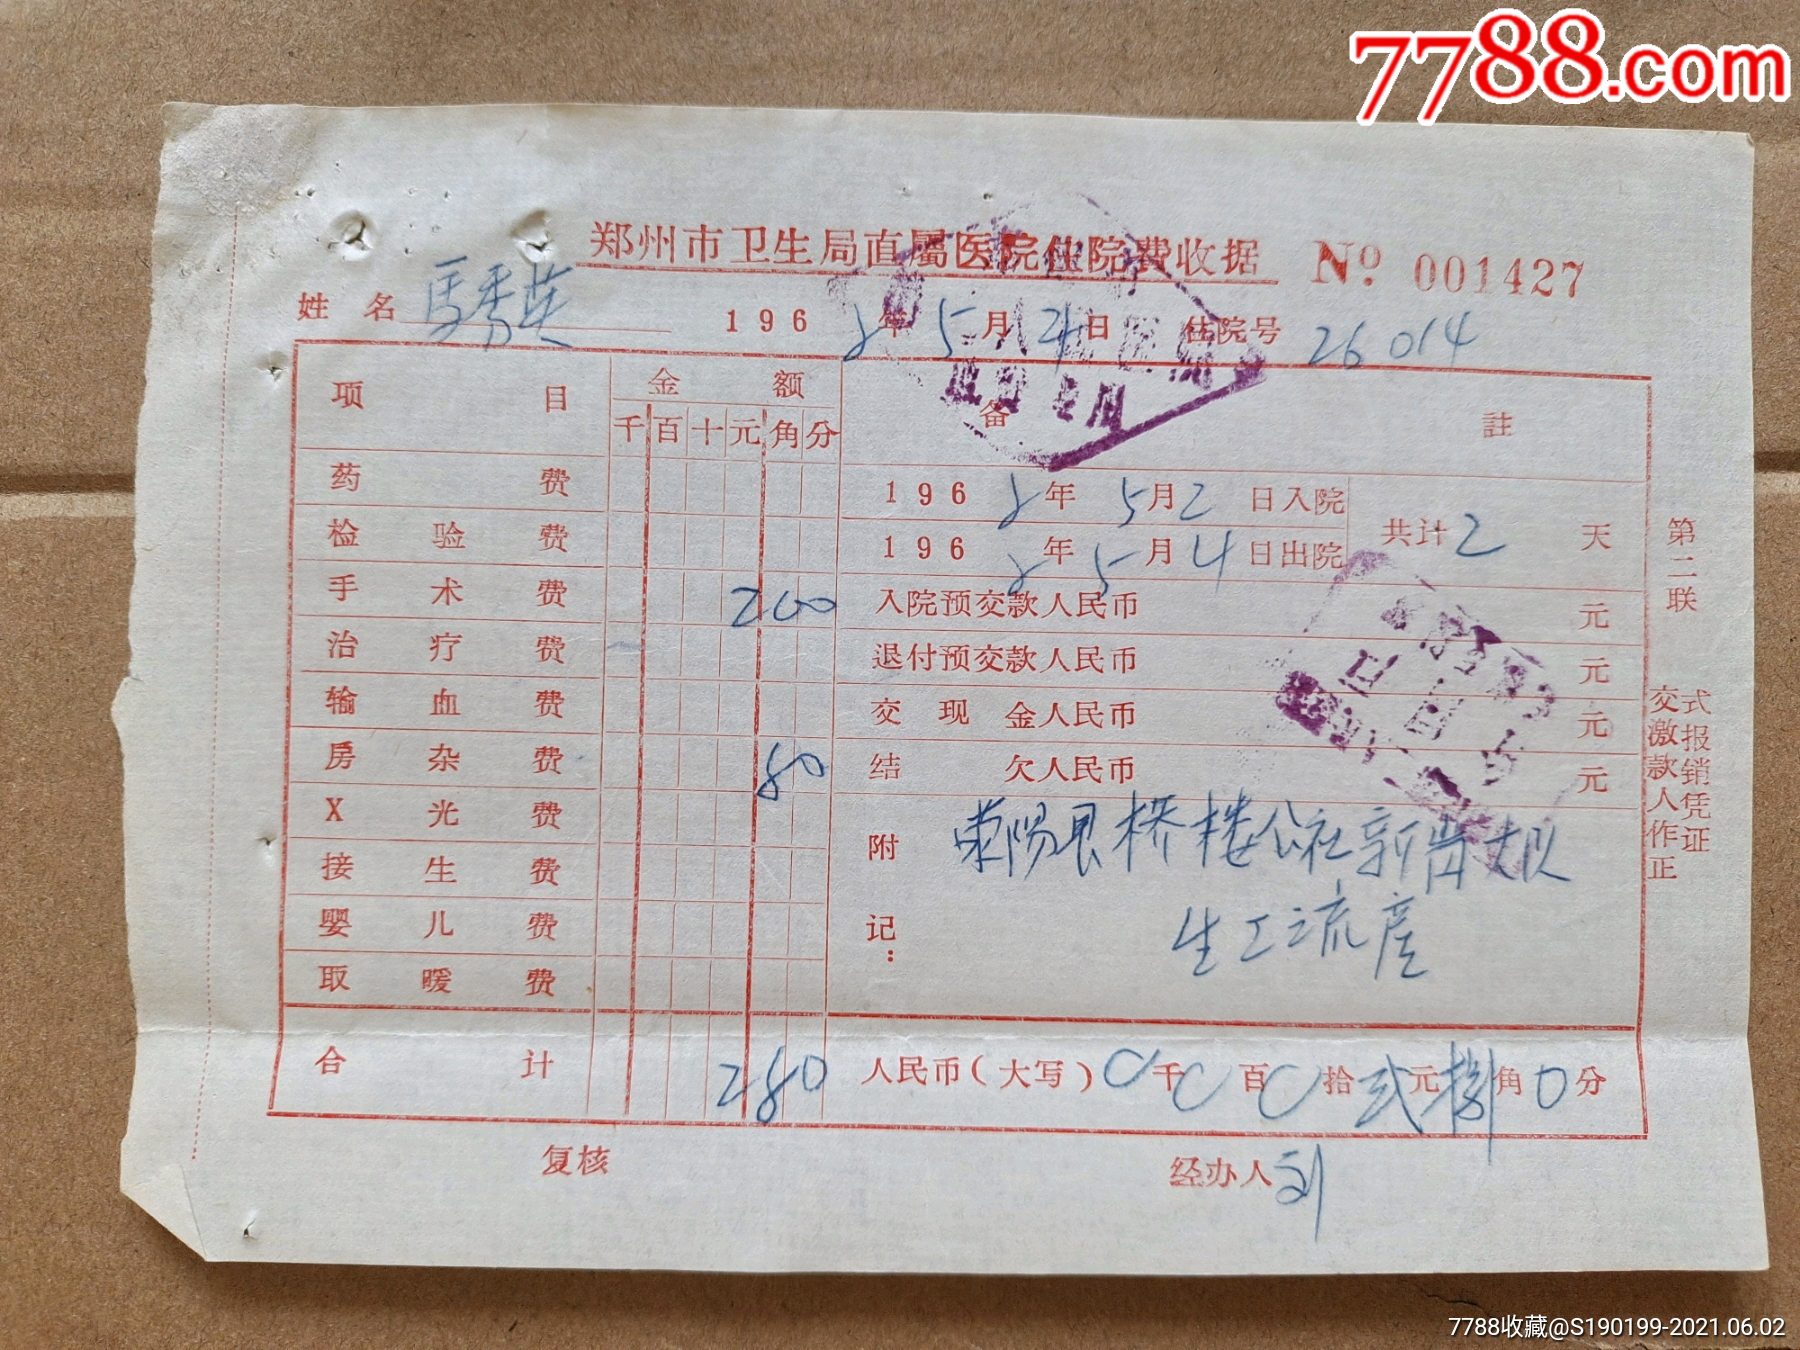 7788.com
郑州市卫生局直属医院住院费收据 № 001427
姓名 馬秀英 196 年 5 月 日 住院号 26014
项目 金额 备註
千 百 十 元 角 分
药费 196 年 5 月 2 日入院
检验费 196 年 5 月 4 日出院 共计 2 天
手术费 2 00 入院预交款人民币 元
治疗费 退付预交款人民币 元
输血费 交现金人民币 元
房杂费 80 结欠人民币 元
X光费
接生费
婴儿费
取暖费
附记: 荥阳县桥楼公社新 大队
流产
合计 2 80 人民币(大写) 0 千 0 百 0 拾 弍 元 捌 角 0 分
复核 经办人 刘
第二联 交激款人作正式报销凭证
7788收藏@S190199-2021.06.02